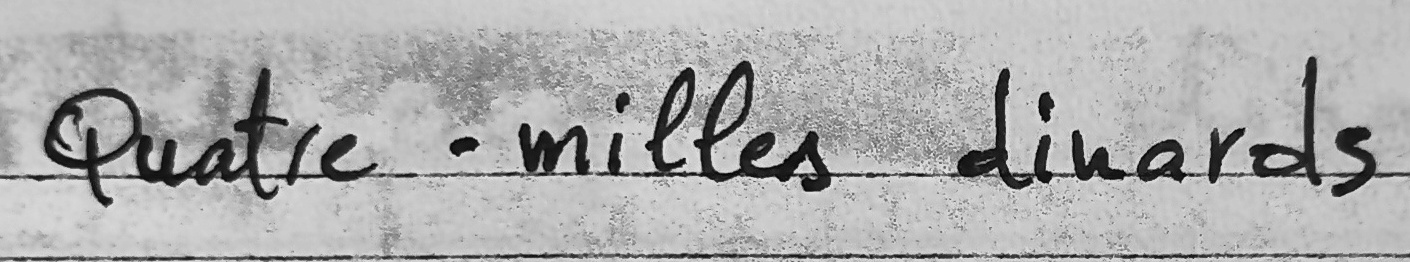 Quatre - milles dinards